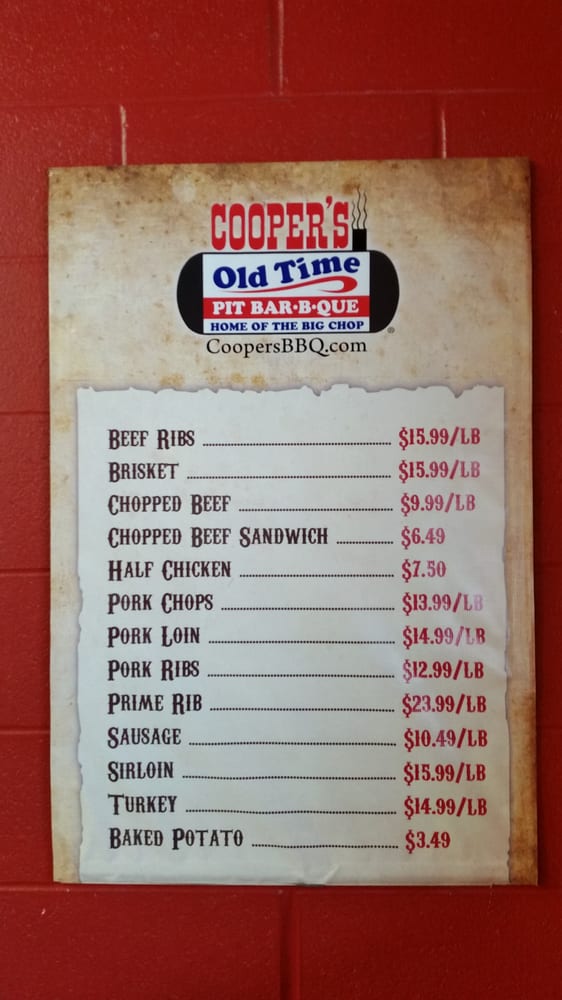 COOPER'S
Old Time
PIT BAR•B•QUE
HOME OF THE BIG CHOP ®
CoopersBBQ.com
BEEF RIBS ........................ $15.99/LB
BRISKET ........................ $15.99/LB
CHOPPED BEEF ........................ $9.99/LB
CHOPPED BEEF SANDWICH ........................ $6.49
HALF CHICKEN ........................ $7.50
PORK CHOPS ........................ $13.99/LB
PORK LOIN ........................ $14.99/LB
PORK RIBS ........................ $12.99/LB
PRIME RIB ........................ $23.99/LB
SAUSAGE ........................ $10.49/LB
SIRLOIN ........................ $15.99/LB
TURKEY ........................ $14.99/LB
BAKED POTATO ........................ $3.49